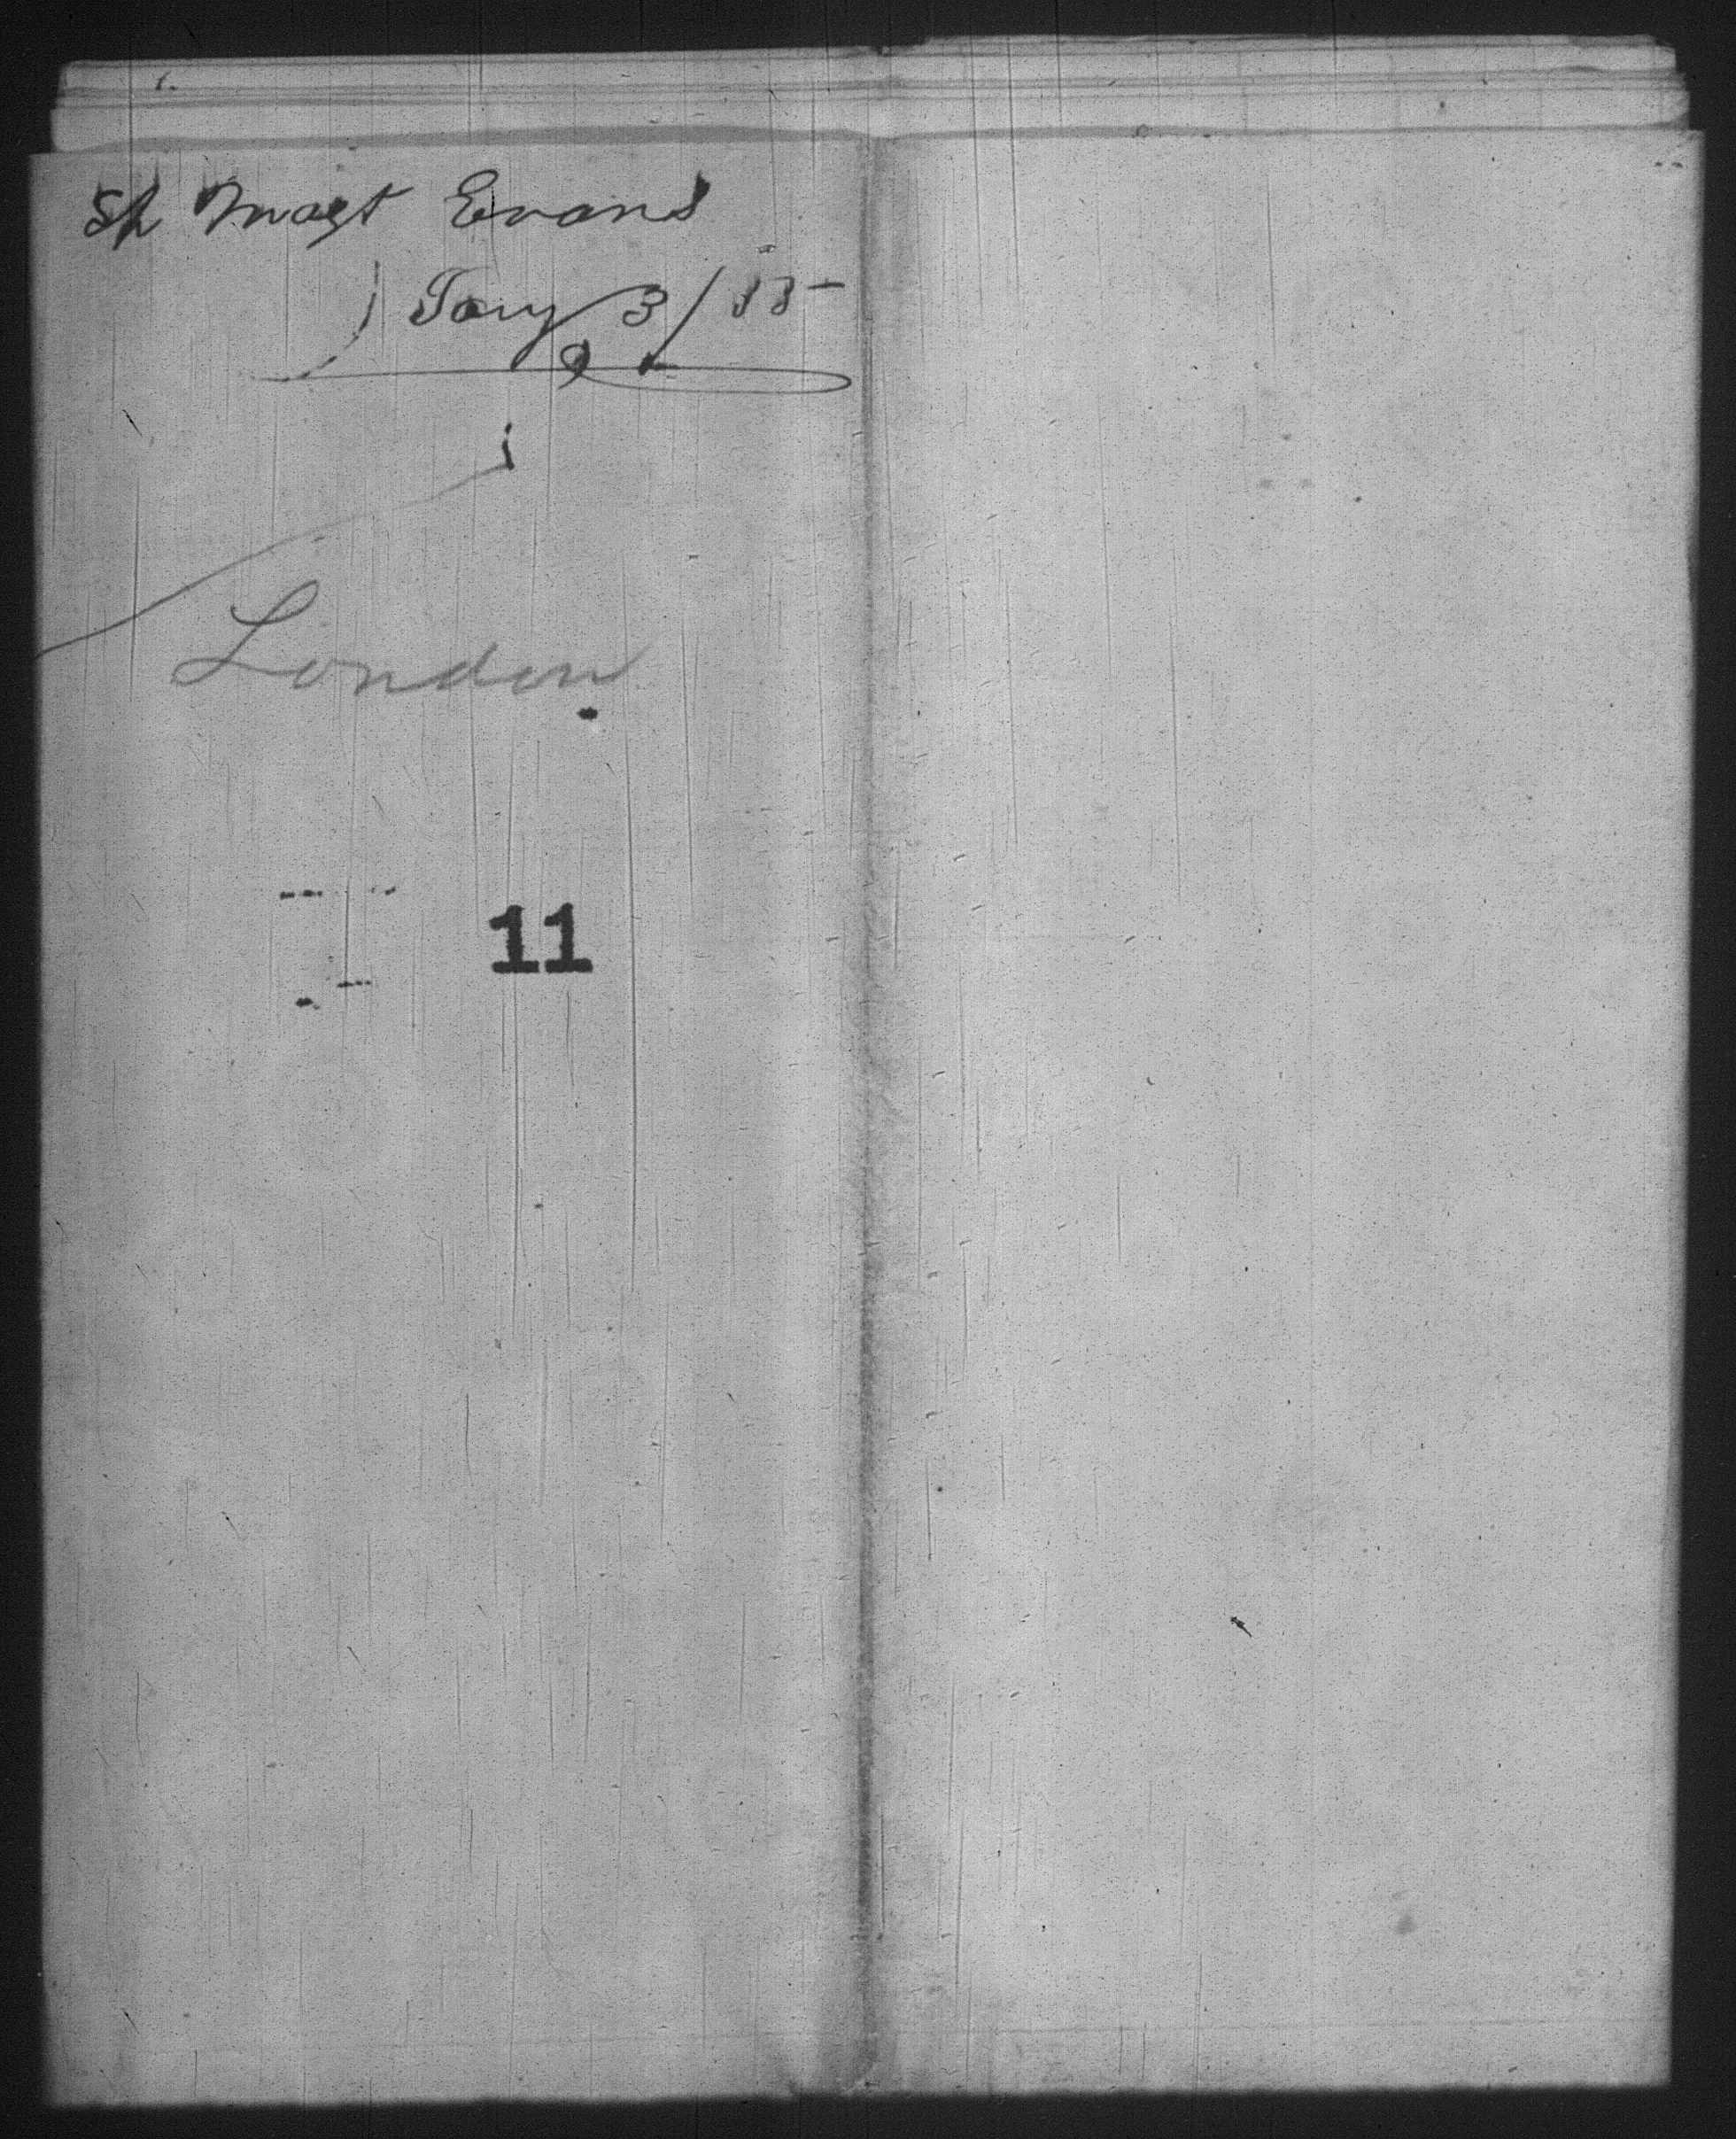 Sh Magt Evans
Jany 3/88
London
11